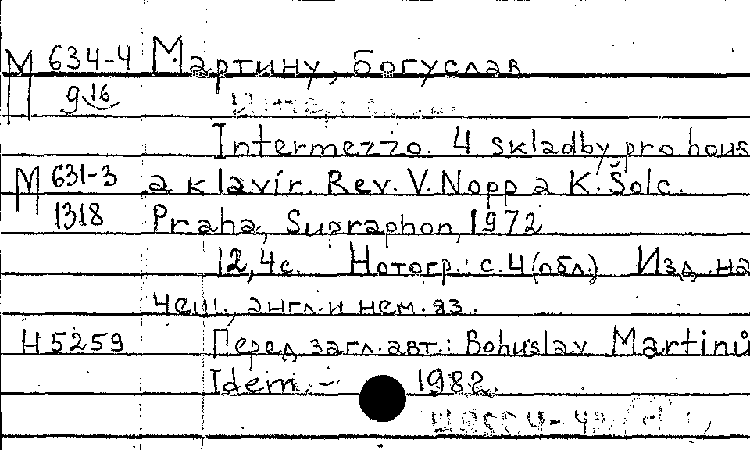 М 634-4 Мартину, Богуслав
9 16
Intermezzo. 4 skladby pro hous
М 631-3 a klavír. Rev. V. Nopp a K. Šolc.
1318 Praha, Supraphon, 1972
12, 4 с. Нотогр.: с. 4 (обл.) Изд. на
чеш., англ. и нем. яз.
Н 5259 Перед загл. авт.: Bohuslav Martinů
Idem. - 1982.